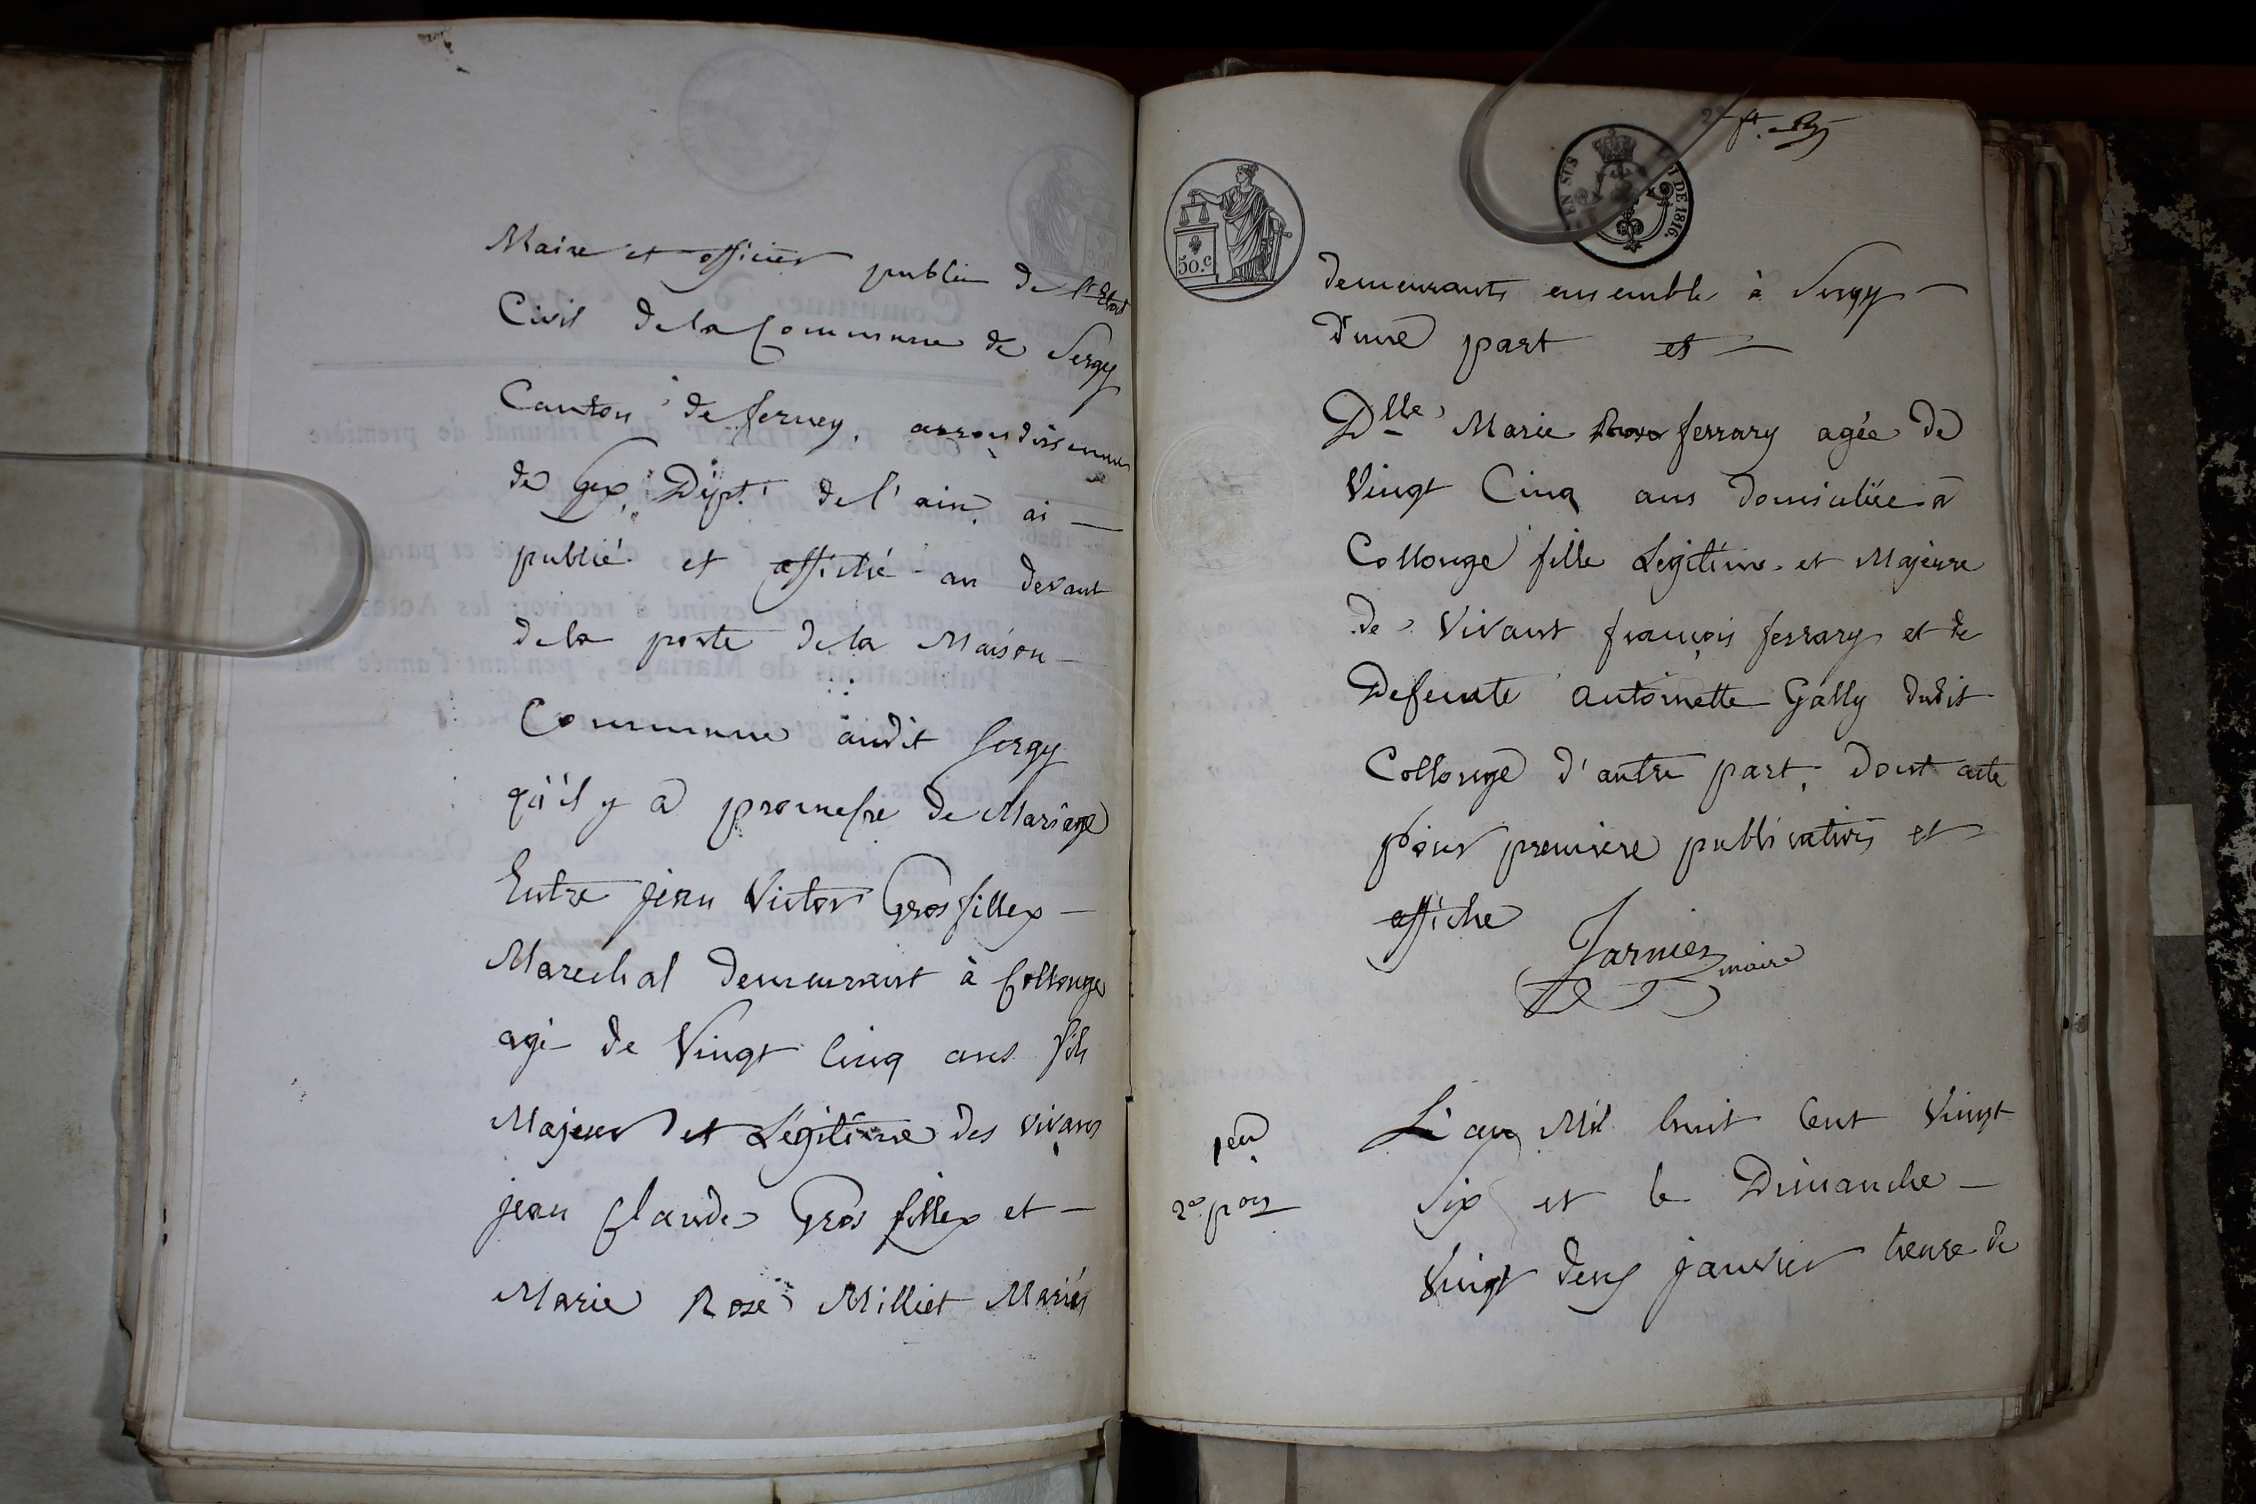 Maire et officier public de l'Etat
Civil de la Commune de Sergy
Canton de ferney, arrondissement
de Gex, Dépt. de l'ain, ai
publié et affiché au devant
de la porte de la Maison
Commune audit Sergy
qu'il y a promesse de Mariage
Entre jean Victor Grosfillex
Marechal demeurant à Collonge
agé de Vingt Cinq ans fils
Majeur et Légitime des vivans
jean Claude Gros fillex et
Marie Rose Milliet Mariés
2e ft.
EN SUS
DE 1816.
50.c
demeurants ensemble à Sergy
D'une part et
Dlle Marie ferrary agée de
Vingt Cinq ans domiciliée à
Collonge fille Legitime et Majeure
de Vivant françois ferrary et de
Defeunte antoinette Gally dudit
Collonge d'autre part, dont acte
pour premiere publication et
affiche
Jarnier maire
L'an Mil huit Cent Vingt
Six et le Dimanche
Vingt deux janvier heure de
1ere
2e pon